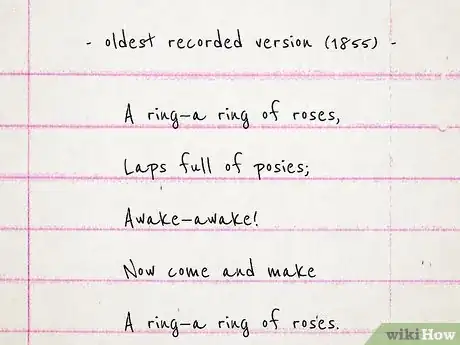 - oldest recorded version (1855) -
A ring-a ring of roses,
Laps full of posies;
Awake-awake!
Now come and make
A ring-a ring of roses.
wikiHow